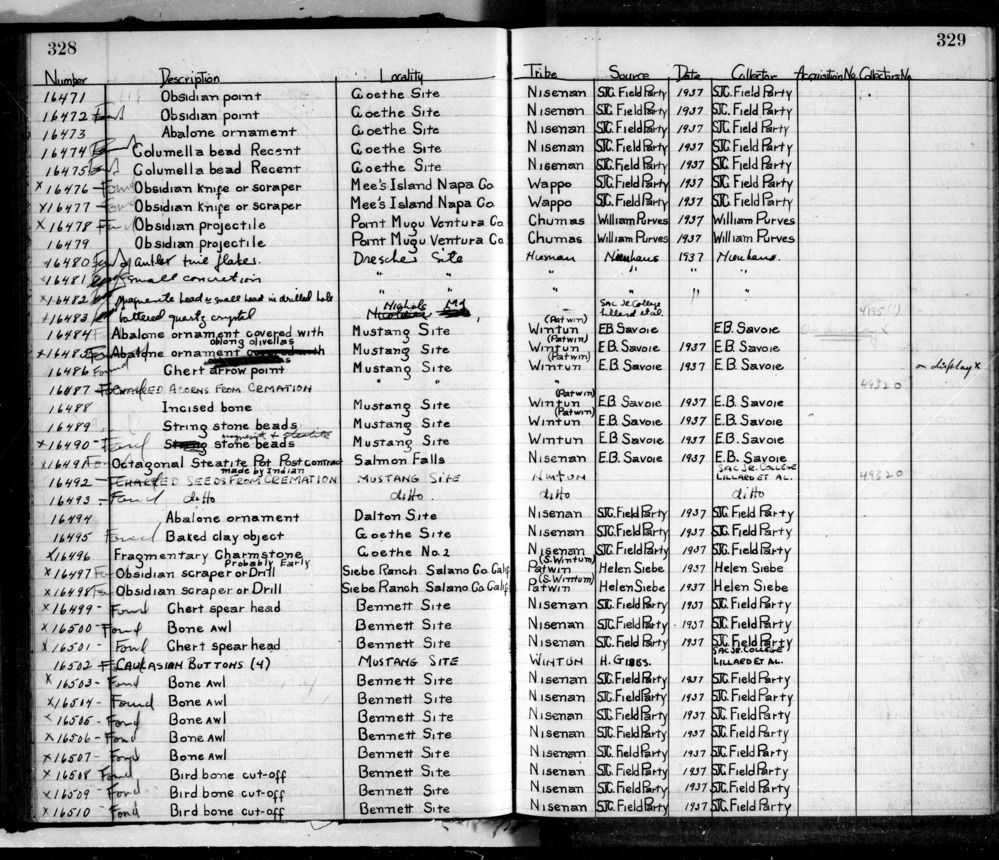 328
329
Number Description Locality Tribe Source Date Collector Acquisition No. Collectors No.
16471 Obsidian point Goethe Site Nisenan SJC. Field Party 1937 SJC. Field Party
16472 Found Obsidian point Goethe Site Nisenan SJC. Field Party 1937 SJC. Field Party
16473 Abalone ornament Goethe Site Nisenan SJC. Field Party 1937 SJC. Field Party
16474 Found Columella bead Recent Goethe Site Nisenan SJC. Field Party 1937 SJC. Field Party
16475 Found Columella bead Recent Goethe Site Nisenan SJC. Field Party 1937 SJC. Field Party
x 16476 - Found Obsidian knife or scraper Mee's Island Napa Co. Wappo SJC. Field Party 1937 SJC. Field Party
x 16477 - Found Obsidian knife or scraper Mee's Island Napa Co. Wappo SJC. Field Party 1937 SJC. Field Party
x 16478 - Found Obsidian projectile Point Mugu Ventura Co. Chumas William Purves 1937 William Purves
16479 Obsidian projectile Point Mugu Ventura Co. Chumas William Purves 1937 William Purves
x 16480 Found antler tine flaker. Drescher Site 1937 Nienhaus.
x 16481 small concretion " " " " " "
x 16482 magnesite bead & small bead in drilled hole " " " " " "
x 16483 battered quartz crystal Nichols Md Sac Jr. College Lillard et al. 4195(?)
16484 Found Abalone ornament covered with oblong olivellas Mustang Site (Patwin) Wintun E.B. Savoie E.B. Savoie
x 16485 Found Abalone ornament Mustang Site (Patwin) Wintun E.B. Savoie 1937 E.B. Savoie
16486 Found Chert arrow point Mustang Site (Patwin) Wintun E.B. Savoie 1937 E.B. Savoie on display x
16487 - CHARRED ACORNS FROM CREMATION " " " 49320
16488 Incised bone Mustang Site (Patwin) Wintun E.B. Savoie 1937 E.B. Savoie
16489 String stone beads Mustang Site (Patwin) Wintun E.B. Savoie 1937 E.B. Savoie
x 16490 - Found magnesite & steatite stone beads Mustang Site Wintun E.B. Savoie 1937 E.B. Savoie
x 16491 Found Octagonal Steatite Pot Post contract made by Indian Salmon Falls Nisenan E.B. Savoie 1937 E.B. Savoie
16492 - CHARRED SEEDS FROM CREMATION MUSTANG SITE WINTUN SAC JR. COLLEGE LILLARD ET AL. 49320
16493 - Found ditto ditto ditto ditto
16494 Abalone ornament Dalton Site Nisenan SJC. Field Party 1937 SJC. Field Party
16495 Found Baked clay object Goethe Site Nisenan SJC. Field Party 1937 SJC. Field Party
x 16496 Fragmentary Charmstone Probably Early Goethe No. 2 Nisenan SJC. Field Party 1937 SJC. Field Party
x 16497 Fo Obsidian scraper or Drill Siebe Ranch Salano Co. Calif (S. Wintum) Patwin Helen Siebe 1937 Helen Siebe
x 16498 Fo Obsidian scraper or Drill Siebe Ranch Salano Co. Calif (S. Wintum) Patwin Helen Siebe 1937 Helen Siebe
x 16499 - Found Chert spear head Bennett Site Nisenan SJC. Field Party 1937 SJC. Field Party
x 16500 - Found Bone awl Bennett Site Nisenan SJC. Field Party 1937 SJC. Field Party
x 16501 - Found Chert spear head Bennett Site Nisenan SJC. Field Party 1937 SJC. Field Party
16502 CAUCASIAN BUTTONS (4) MUSTANG SITE WINTUN H. GIBBS. SAC JR. COLLEGE LILLARD ET AL.
x 16503 - Fond Bone AWl Bennett Site Nisenan SJC. Field Party 1937 SJC. Field Party
x 16504 - Found Bone AWl Bennett Site Nisenan SJC. Field Party 1937 SJC. Field Party
x 16505 - Fond Bone AWl Bennett Site Nisenan SJC. Field Party 1937 SJC. Field Party
x 16506 - Fond Bone AWl Bennett Site Nisenan SJC. Field Party 1937 SJC. Field Party
x 16507 - Fond Bone AWl Bennett Site Nisenan SJC. Field Party 1937 SJC. Field Party
x 16508 Fond Bird bone cut-off Bennett Site Nisenan SJC. Field Party 1937 SJC. Field Party
x 16509 - Fond Bird bone cut-off Bennett Site Nisenan SJC. Field Party 1937 SJC. Field Party
x 16510 - Fond Bird bone cut-off Bennett Site Nisenan SJC. Field Party 1937 SJC. Field Party